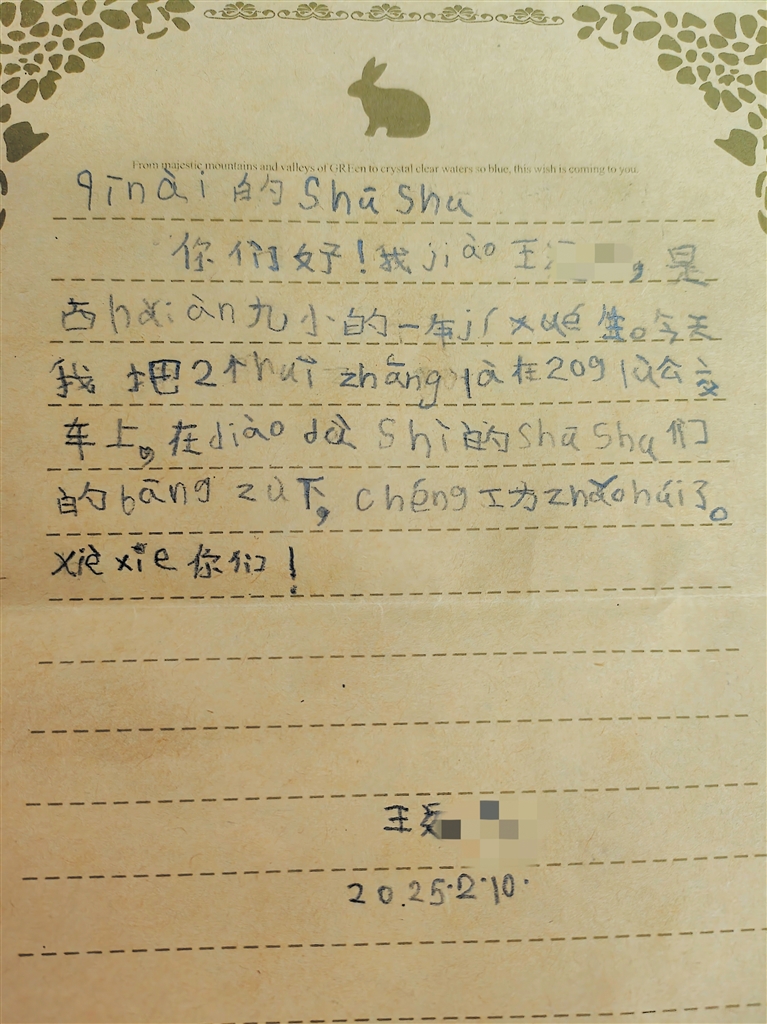 From majestic mountains and valleys of GREen to crystal clear waters so blue, this wish is coming to you
qīnài 的 Shū Shu
你们好！我 jiào 王，是
西 hǎi àn 九小的一年 jí xué 生。今天
我把2个 huī zhāng là 在 209 lù 公交
车上，在 diào dù Shì 的 Shū Shu 们
的 bāng zù 下，chéng 工为 zhǎo huí 了。
xiè xie 你们！
王
2025.2.10.